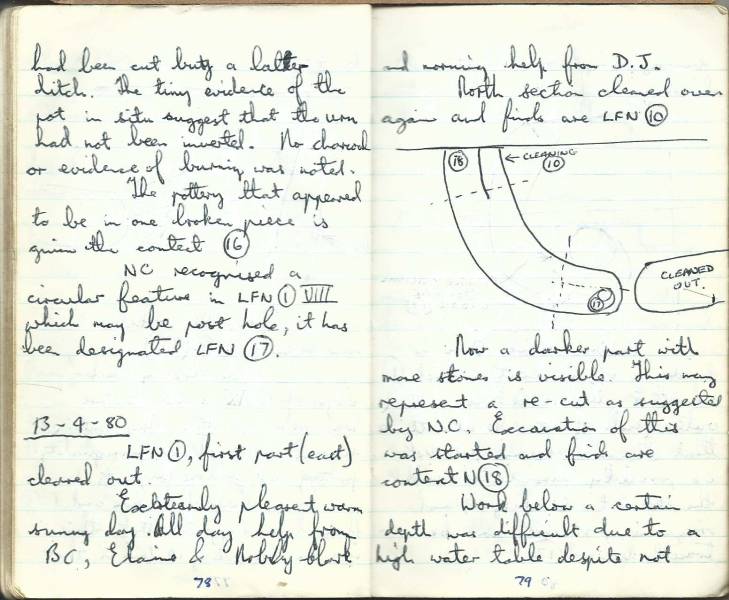 had been cut by a latter
ditch. The tiny evidence of the
pot in situ suggest that the urn
had not been inverted. No charcoal
or evidence of burning was noted.
The pottery that appeared
to be in one broken piece is
given the context (16)
NC recognised a
circular feature in LFN (1) VIII
which may be post hole, it has
been designated LFN (17).
13-4-80
LFN (1), first part (east)
cleared out.
pleasent warm
sunny day. All day help from
BC, Elaine & Clark
78
and morning help from D.J.
North section cleaned over
again and finds are LFN (10)
(18)
← CLEANING
(10)
CLEANED
OUT.
(17)
Now a darker part with
more stones is visible. This may
represent a re-cut as suggested
by N.C. Excavation of this
was started and finds are
context N (18)
Work below a certain
depth was difficult due to a
high water table despite not
79